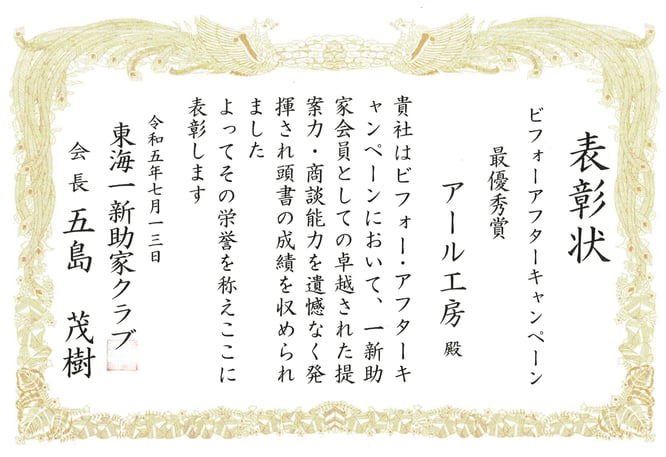 表彰状
ビフォーアフターキャンペーン
最優秀賞
アール工房 殿
貴社はビフォー・アフターキ
ャンペーンにおいて、一新助
家会員としての卓越された提
案力・商談能力を遺憾なく発
揮され頭書の成績を収められ
ました
よってその栄誉を称えここに
表彰します
令和五年七月一三日
東海一新助家クラブ
会長 五島 茂樹